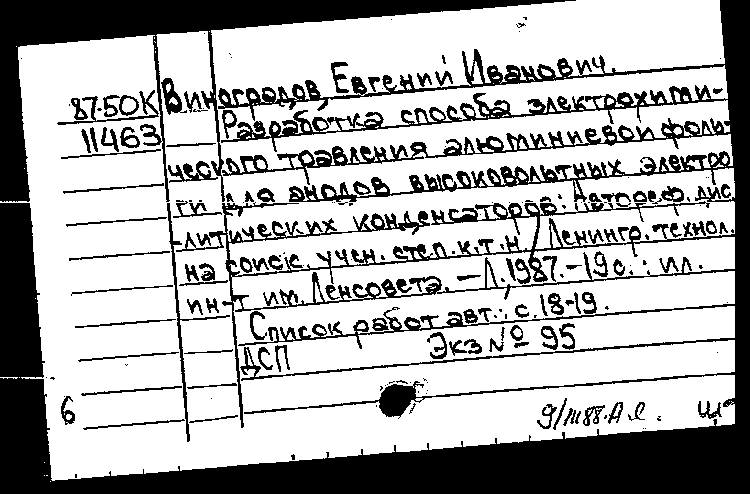 87-50К Виноградов, Евгений Иванович.
11463 Разработка способа электрохими-
ческого травления алюминиевой фоль-
ги для анодов высоковольтных электро
-литических конденсаторов: Автореф. дис.
на соиск. учен. степ. к.т.н. / Ленингр. технол.
ин-т им. Ленсовета. – Л., 1987. – 19 с.: ил.
Список работ авт.: с. 18-19.
ДСП Экз № 95
6
9/III 88.